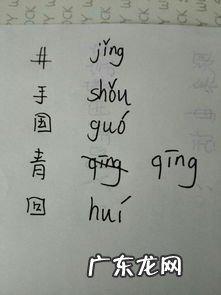 井 jǐng
手 shǒu
国 guó
青 qīng qīng
回 huí
广东龙网